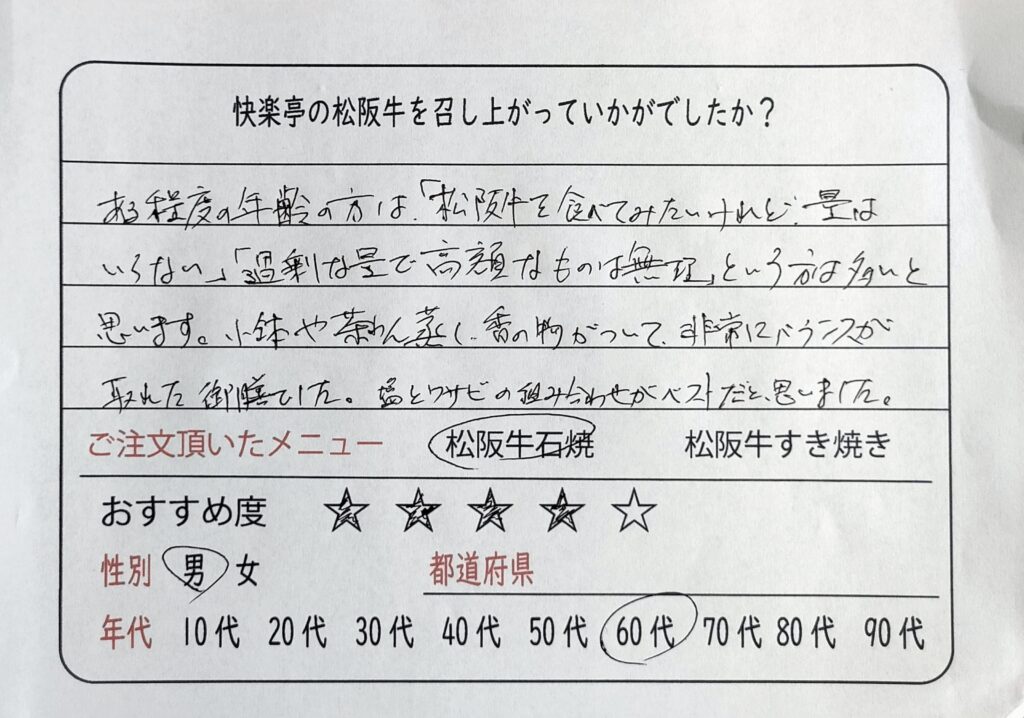 快楽亭の松阪牛を召し上がっていかがでしたか？
ある程度の年齢の方は、「松阪牛を食べてみたいけれど、量は
いらない」「過剰な量で高額なものは無理」という方は多いと
思います。小鉢や茶わん蒸し、香の物がついて、非常にバランスが
取れた御膳でした。塩とワサビの組み合わせがベストだと、思いました。
ご注文頂いたメニュー 松阪牛石焼 松阪牛すき焼き
おすすめ度 ★ ★ ★ ★ ☆
性別 男 女 都道府県
年代 10代 20代 30代 40代 50代 60代 70代 80代 90代